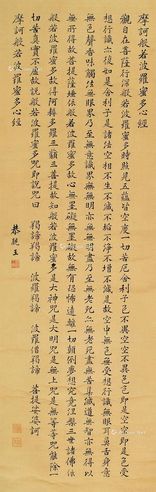 摩訶般若波羅蜜多心經
觀自在菩薩行深般若波羅蜜多時照見五蘊皆空度一切苦厄舍利子色不異空空不異色色即是空空即是色受
想行識亦復如是舍利子是諸法空相不生不滅不垢不淨不增不減是故空中無色無受想行識無眼耳鼻舌身意
無色聲香味觸法無眼界乃至無意識界無無明亦無無明盡乃至無老死亦無老死盡無苦集滅道無智亦無得以
無所得故菩提薩埵依般若波羅蜜多故心無罣礙無罣礙故無有恐怖遠離一切顛倒夢想究竟涅槃三世諸佛依
般若波羅蜜多故得阿耨多羅三藐三菩提故知般若波羅蜜多是大神咒是大明咒是無上咒是無等等咒能除一
切苦真實不虛故說般若波羅蜜多咒即說咒曰 羯諦羯諦 波羅羯諦 波羅僧羯諦 菩提娑婆訶
摩訶般若波羅蜜多心經
恭親王